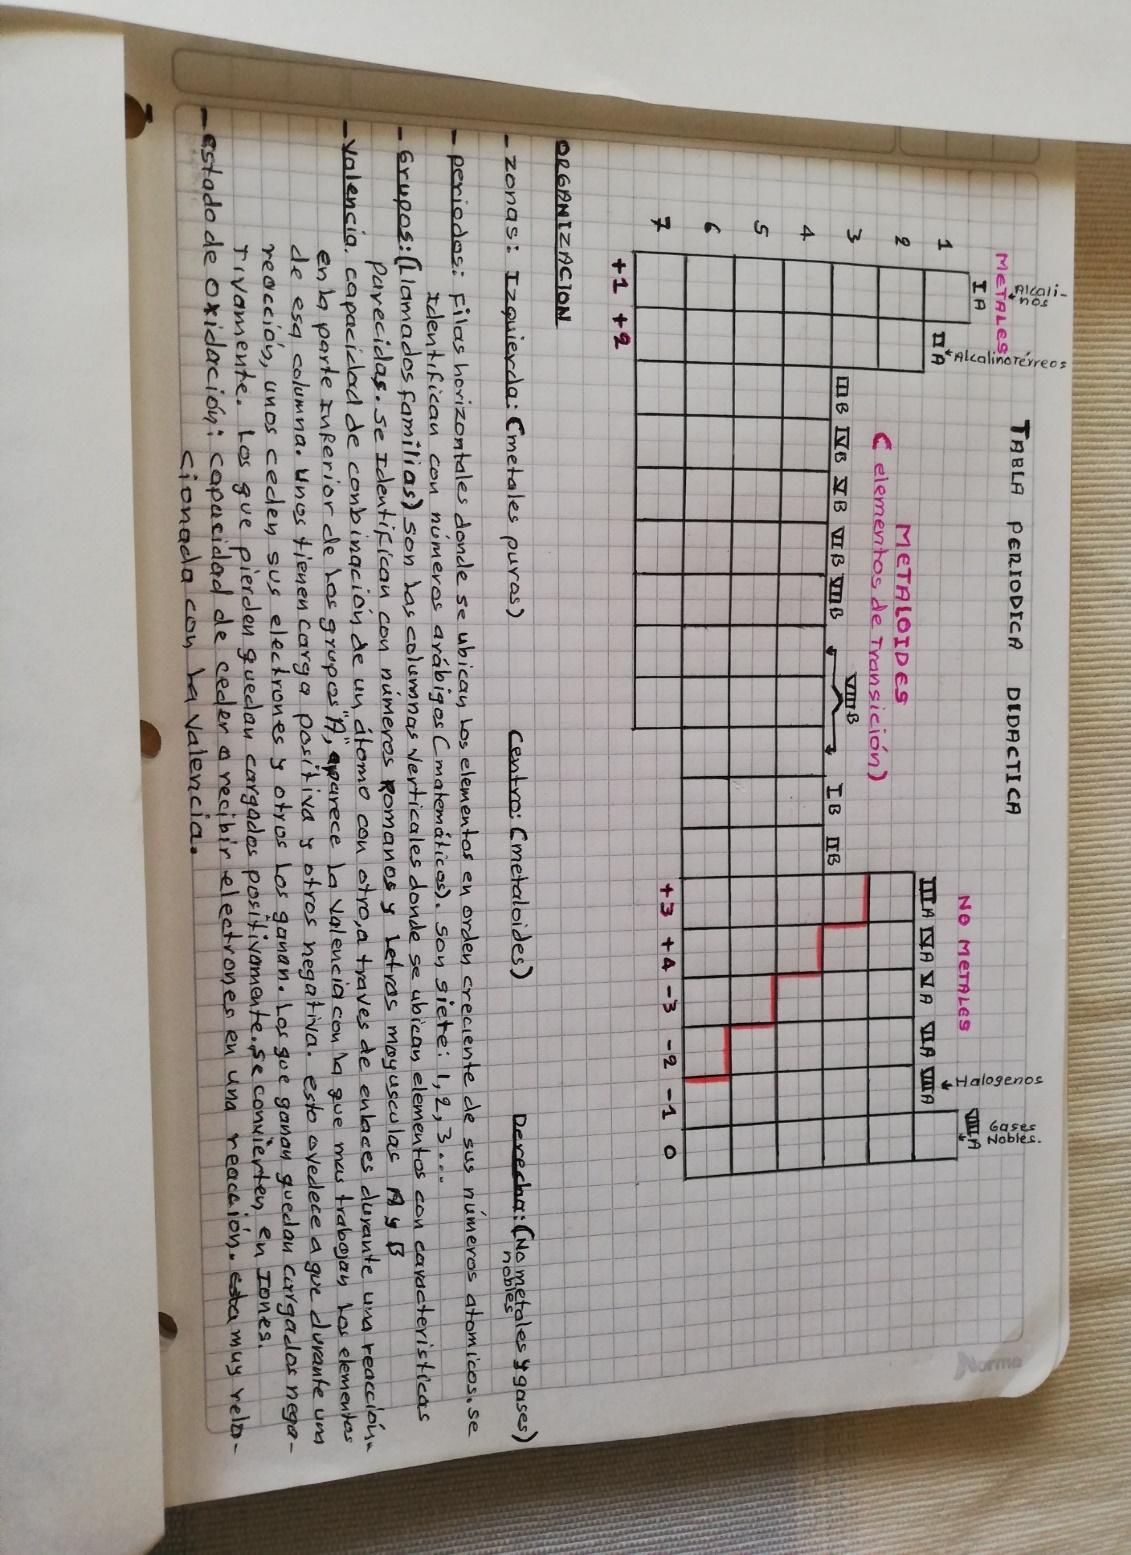 TABLA PERIODICA DIDACTICA
Alcali-
nos
METALES
IA
Alcalinotérreos
IIA
METALOIDES
( elementos de Transición)
IIIB IVB VB VIB VIIB VIIIB IB IIB
NO METALES
Halogenos
Gases
Nobles.
IIIA IVA VA VIA VIIA VIIIA
1
2
3
4
5
6
7
+1 +2
+3 +4 -3 -2 -1 0
ORGANIZACION
- Zonas: Izquierda: (metales puros) Centro: (metaloides) Derecha: (No metales y gases)
nobles
- periodos: Filas horizontales donde se ubican los elementos en orden creciente de sus números atomicos. se
identifican con números arábigos (matemáticos). son siete: 1, 2, 3...
- Grupos: (llamados familias) son las columnas verticales donde se ubican elementos con caracteristicas
parecidas. se identifican con números Romanos y letras mayusculas A y B
- Valencia. capacidad de conbinación de un átomo con otro, a traves de enlaces durante una reacción.
en la parte inferior de los grupos "A", aparece la valencia con la que mas trabajan los elementos
de esa columna. unos tienen carga positiva y otros negativa. esto ovedece a que durante una
reacción, unos ceden sus electrones y otros los ganan. los que ganan quedan cargados nega-
tivamente. los que pierden quedan cargados positivamente. se convierten en Iones.
- estado de oxidación: capacidad de ceder o recibir electrones en una reacción. esta muy rela-
cionada con la valencia.
Norma